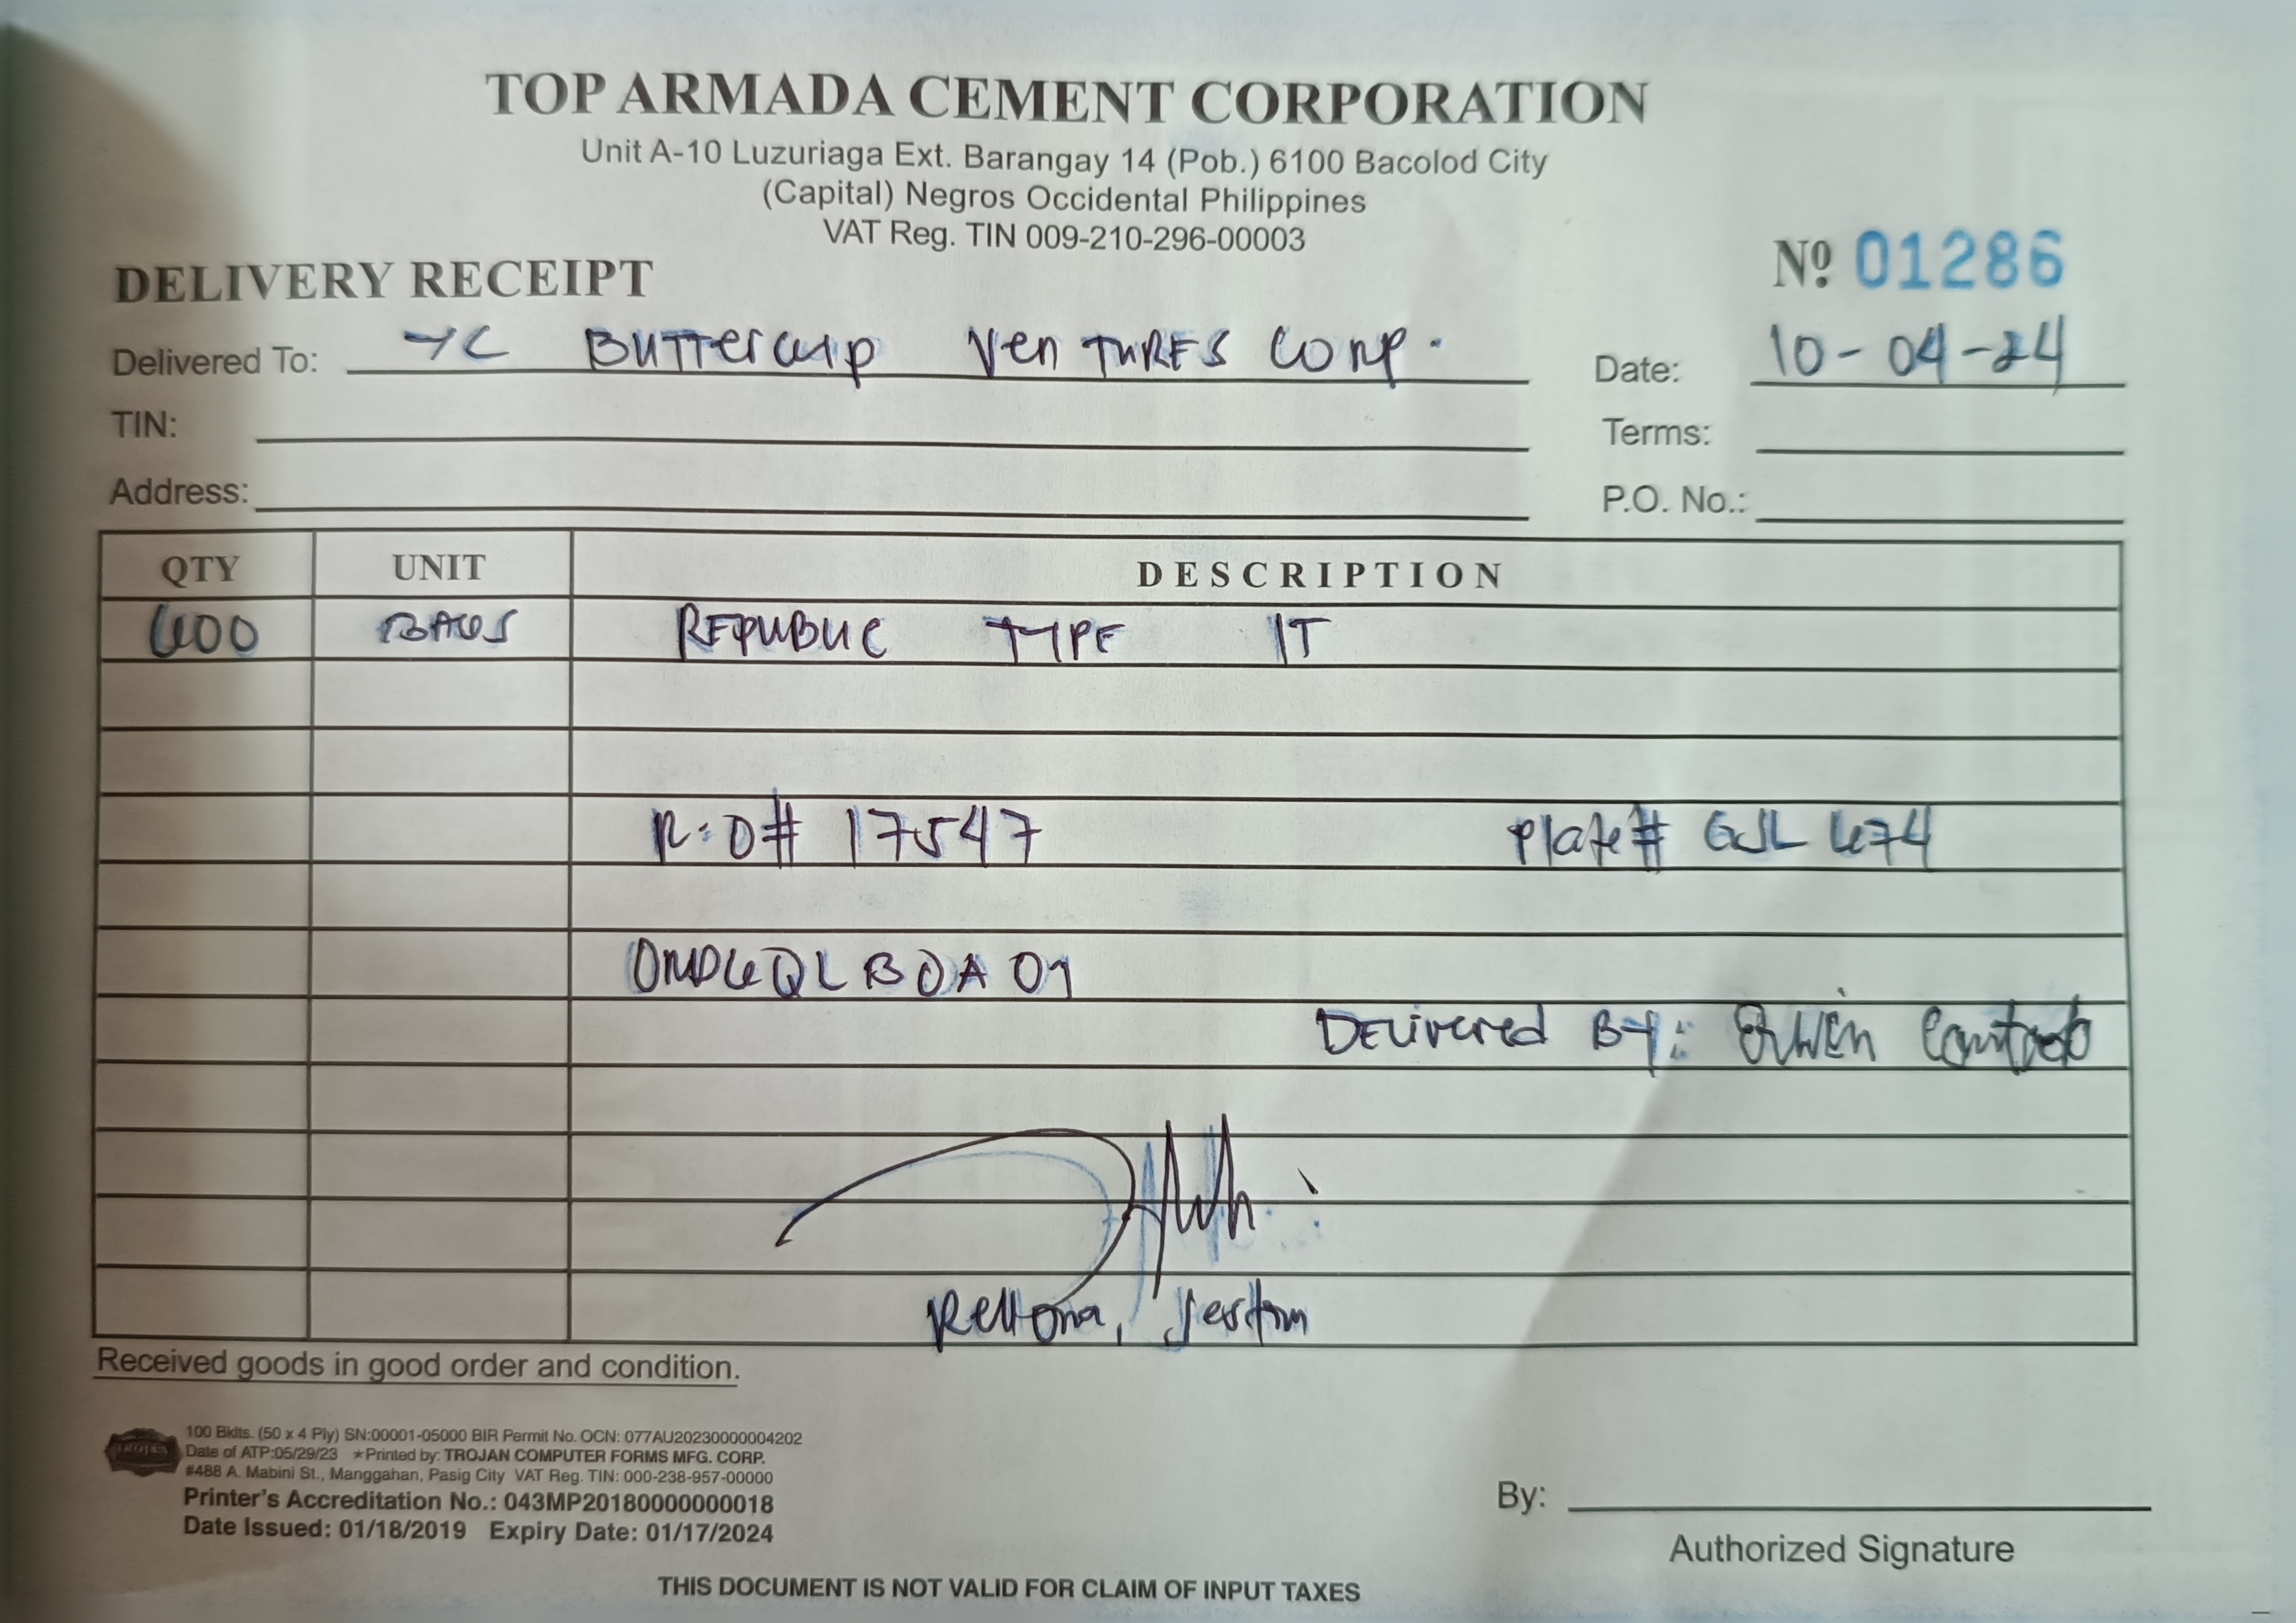 TOP ARMADA CEMENT CORPORATION
Unit A-10 Luzuriaga Ext. Barangay 14 (Pob.) 6100 Bacolod City
(Capital) Negros Occidental Philippines
VAT Reg. TIN 009-210-296-00003
DELIVERY RECEIPT
Nº 01286
Delivered To: YC Buttercup VenTURES Corp.
Date: 10-04-24
TIN:
Terms:
Address:
P.O. No.:
QTY UNIT DESCRIPTION
600 BAGS REPUBLIC TYPE 1T
R.O# 17547 Plate# GJL 674
OMD6QLBOA01
DELivered By:
Received goods in good order and condition.
100 Bklts. (50 x 4 Ply) SN:00001-05000 BIR Permit No. OCN: 077AU20230000004202
Date of ATP:05/29/23 ★Printed by: TROJAN COMPUTER FORMS MFG. CORP.
#488 A. Mabini St., Manggahan, Pasig City VAT Reg. TIN: 000-238-957-00000
Printer's Accreditation No.: 043MP20180000000018
Date Issued: 01/18/2019 Expiry Date: 01/17/2024
By:
Authorized Signature
THIS DOCUMENT IS NOT VALID FOR CLAIM OF INPUT TAXES